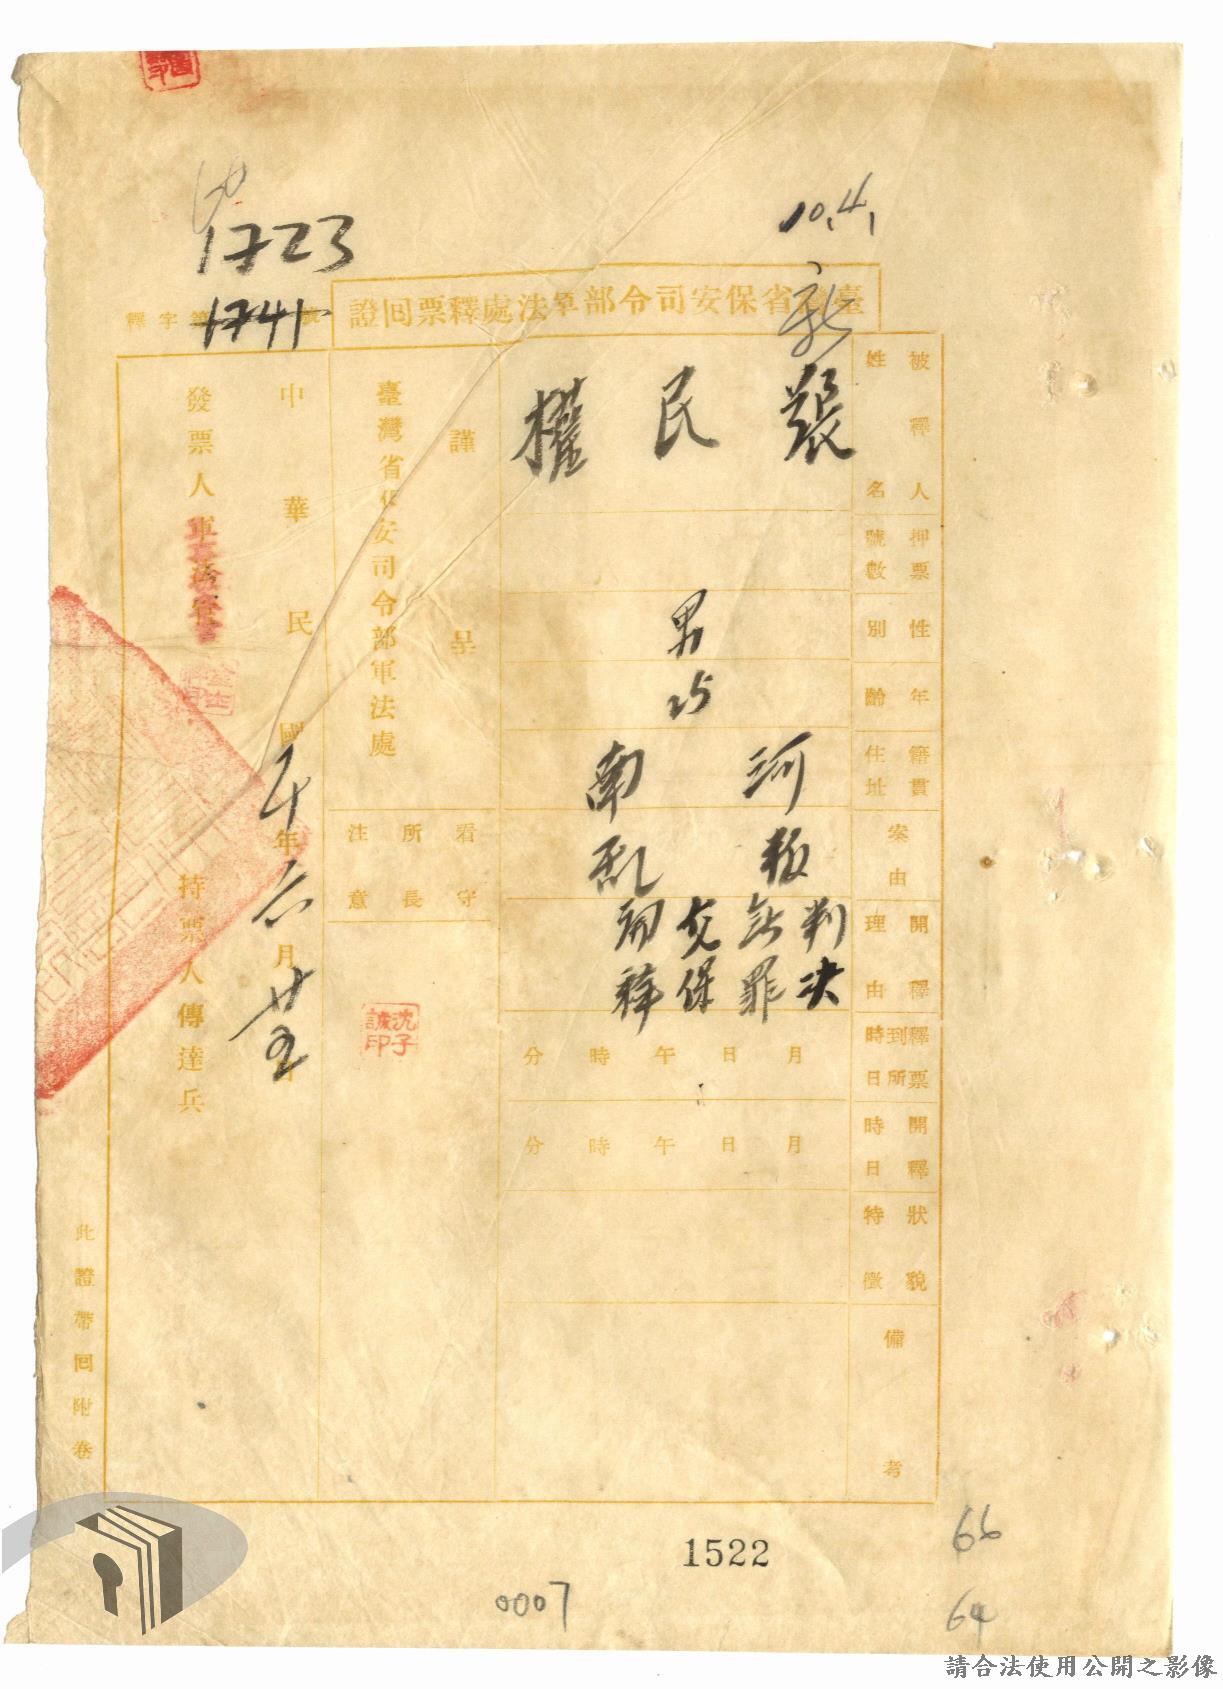 10.4.
1723
1741
釋字第號
臺灣省保安司令部軍法處釋票回證
被釋人姓名
張民權
押票號數
性別
男
年齡
25
籍貫住址
河南
案由
叛亂
開釋理由
判決
無罪
交保
開釋
釋票到所時日
月日午時分
開釋時日
月日午時分
狀貌特徵
備考
謹呈
臺灣省保安司令部軍法處
看守所長注意
沈子誠印
中華民國年六月廿五日
發票人軍法官
持票人傳達兵
此證帶回附卷
1522
0007
66
64
請合法使用公開之影像